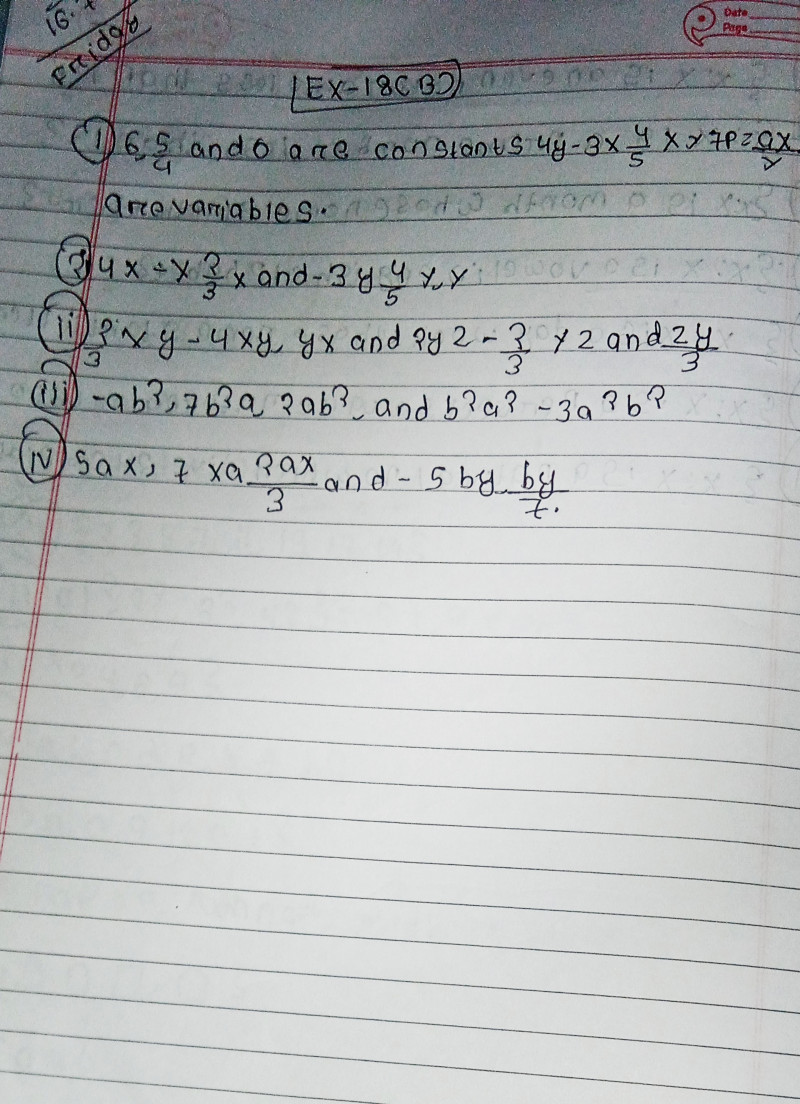 16.
Friday
Date
Page
EX-18C(B)
(1) 6, 5/4 and 0 are constants 4y -3x 4/5 x y 7p = 9x/y
are variables.
(2) 4x - x 2/3 x and -3y 4/5 y, y
(ii) 2/3 xy - 4xy, yx and 2yz - 2/3 yz and zy/3
(iii) -ab2, 7b2a, 2ab2, and b2a2 - 3a2b2
(iv) 5ax, 7xa 2ax/3 and -5by, by/7.